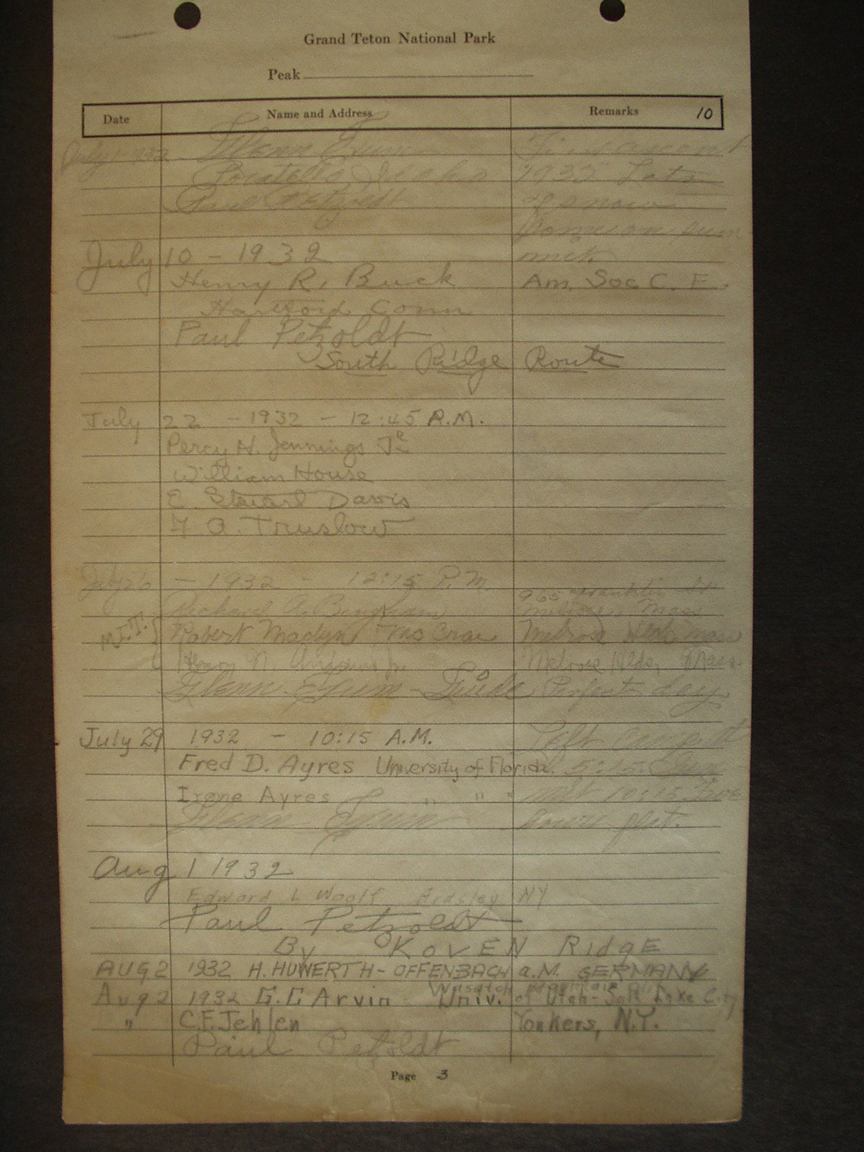 Grand Teton National Park
Peak
Date Name and Address Remarks 10
July 1932 Glenn Exum First ascent
Pocatello Idaho 1932 Lots
Paul Petzoldt of snow
on sum
mit
July 10 - 1932
Henry R. Buck Am. Soc C. E.
Hartford Conn
Paul Petzoldt
South Ridge Route
July 22 - 1932 - 12:45 P.M.
Percy H. Jennings Jr
William House
E. Stuart Davis
F A. Truslow
July 26 - 1932 - 12:15 P.M.
965 Franklin St
Richard A. Bingham Melrose Mass
M.I.T. Robert Mc Crae Melrose Hlds mass
Henry N. Jr. Melrose Hlds, Mass
Glenn Exum - Guide Perfect day
July 29 1932 - 10:15 A.M. Left camp at
Fred D. Ayres University of Florida. 5:15. Sum
Irene Ayres " " " mit 10:15. Fine
Glenn Exum
Aug 1 1932
Edward L Woolf Ardsley NY
Paul Petzoldt
By KOVEN RIDGE
AUG 2 1932 H. HUWERTH - OFFENBACH a.M. GERMANY
Wasatch Mountain Club
Aug 2 1932 G. C Arvin Univ. of Utah - Salt Lake City
" C.F. Jehlen Yonkers, N.Y.
Paul Petzoldt
Page 3